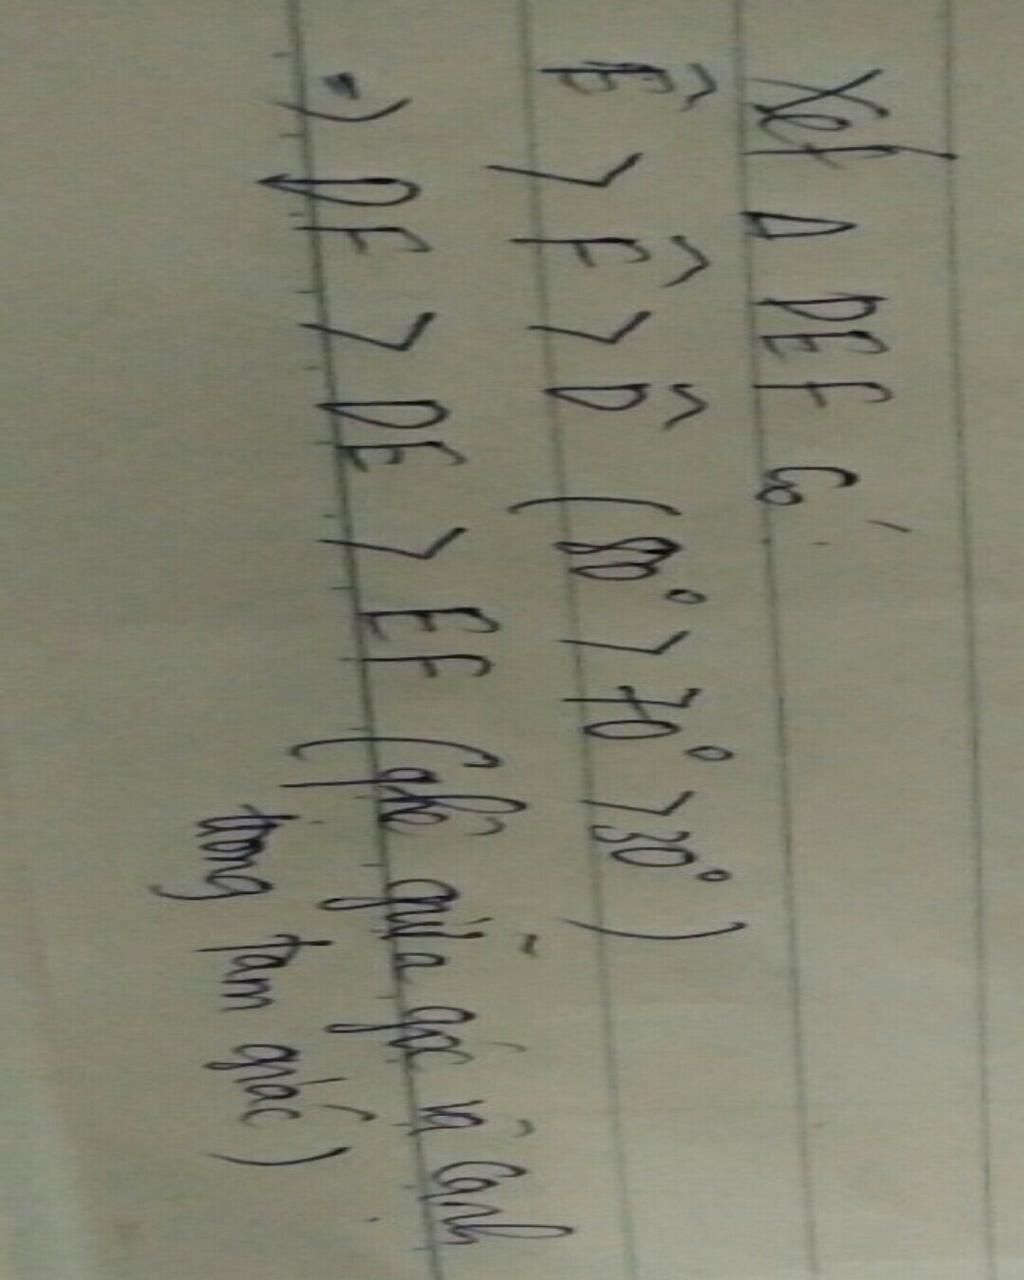 Xét Δ DEF có
Ê > F̂ > D̂ (80° > 70° > 30°)
=) DF > DE > EF (qhệ giữa góc và cạnh
trong tam giác)